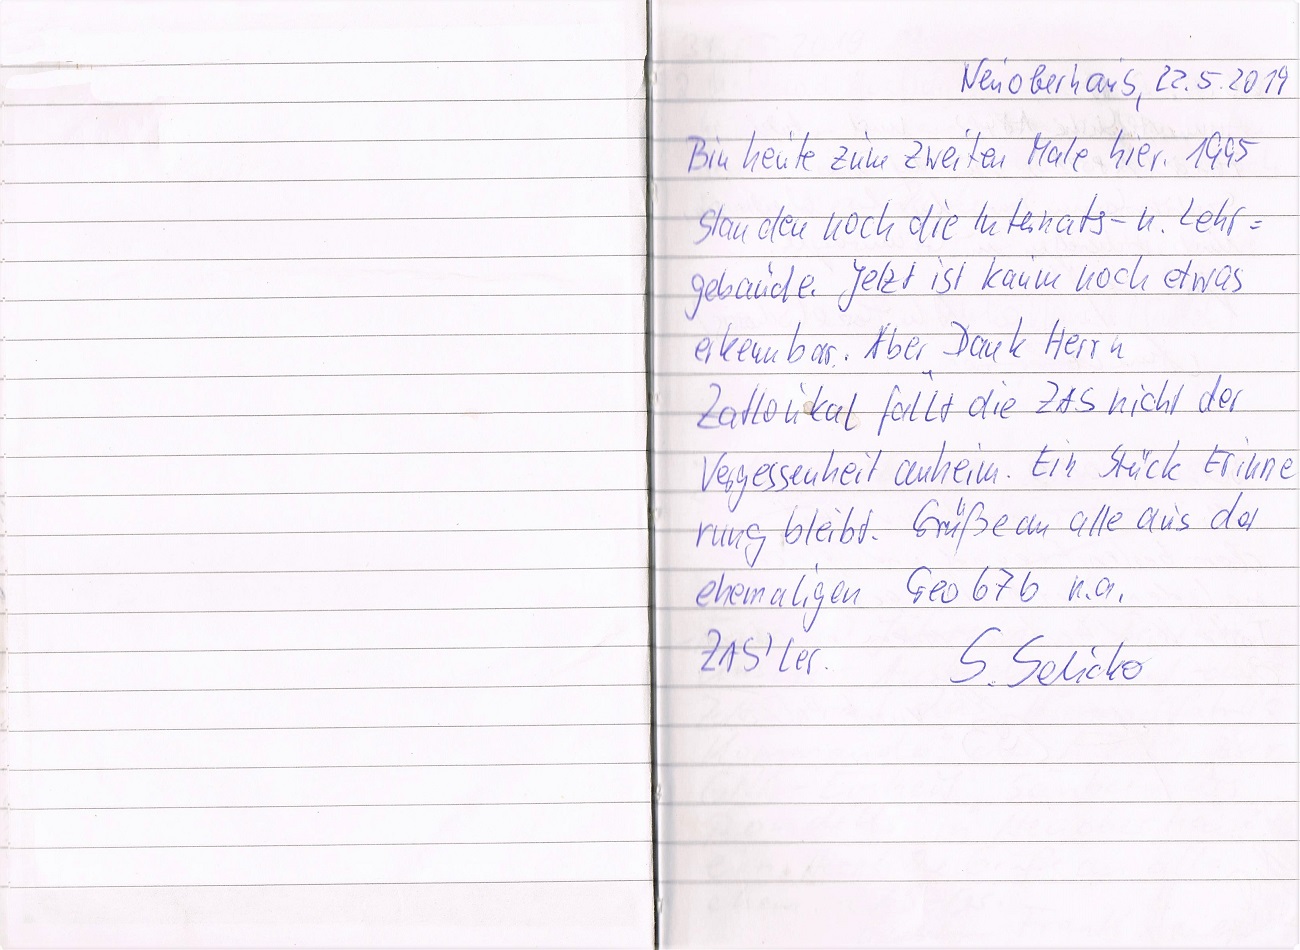 Neuoberhaus, 22.5.2019
Bin heute zum zweiten Male hier. 1995
standen noch die Internats- u. Lehr=
gebäude. Jetzt ist kaum noch etwas
erkennbar. Aber Dank Herrn
Zatloukal fällt die ZAS nicht der
Vergessenheit anheim. Ein Stück Erinne
rung bleibt. Grüße an alle aus der
ehemaligen Geo 67b u.a.
ZAS'ler. S.